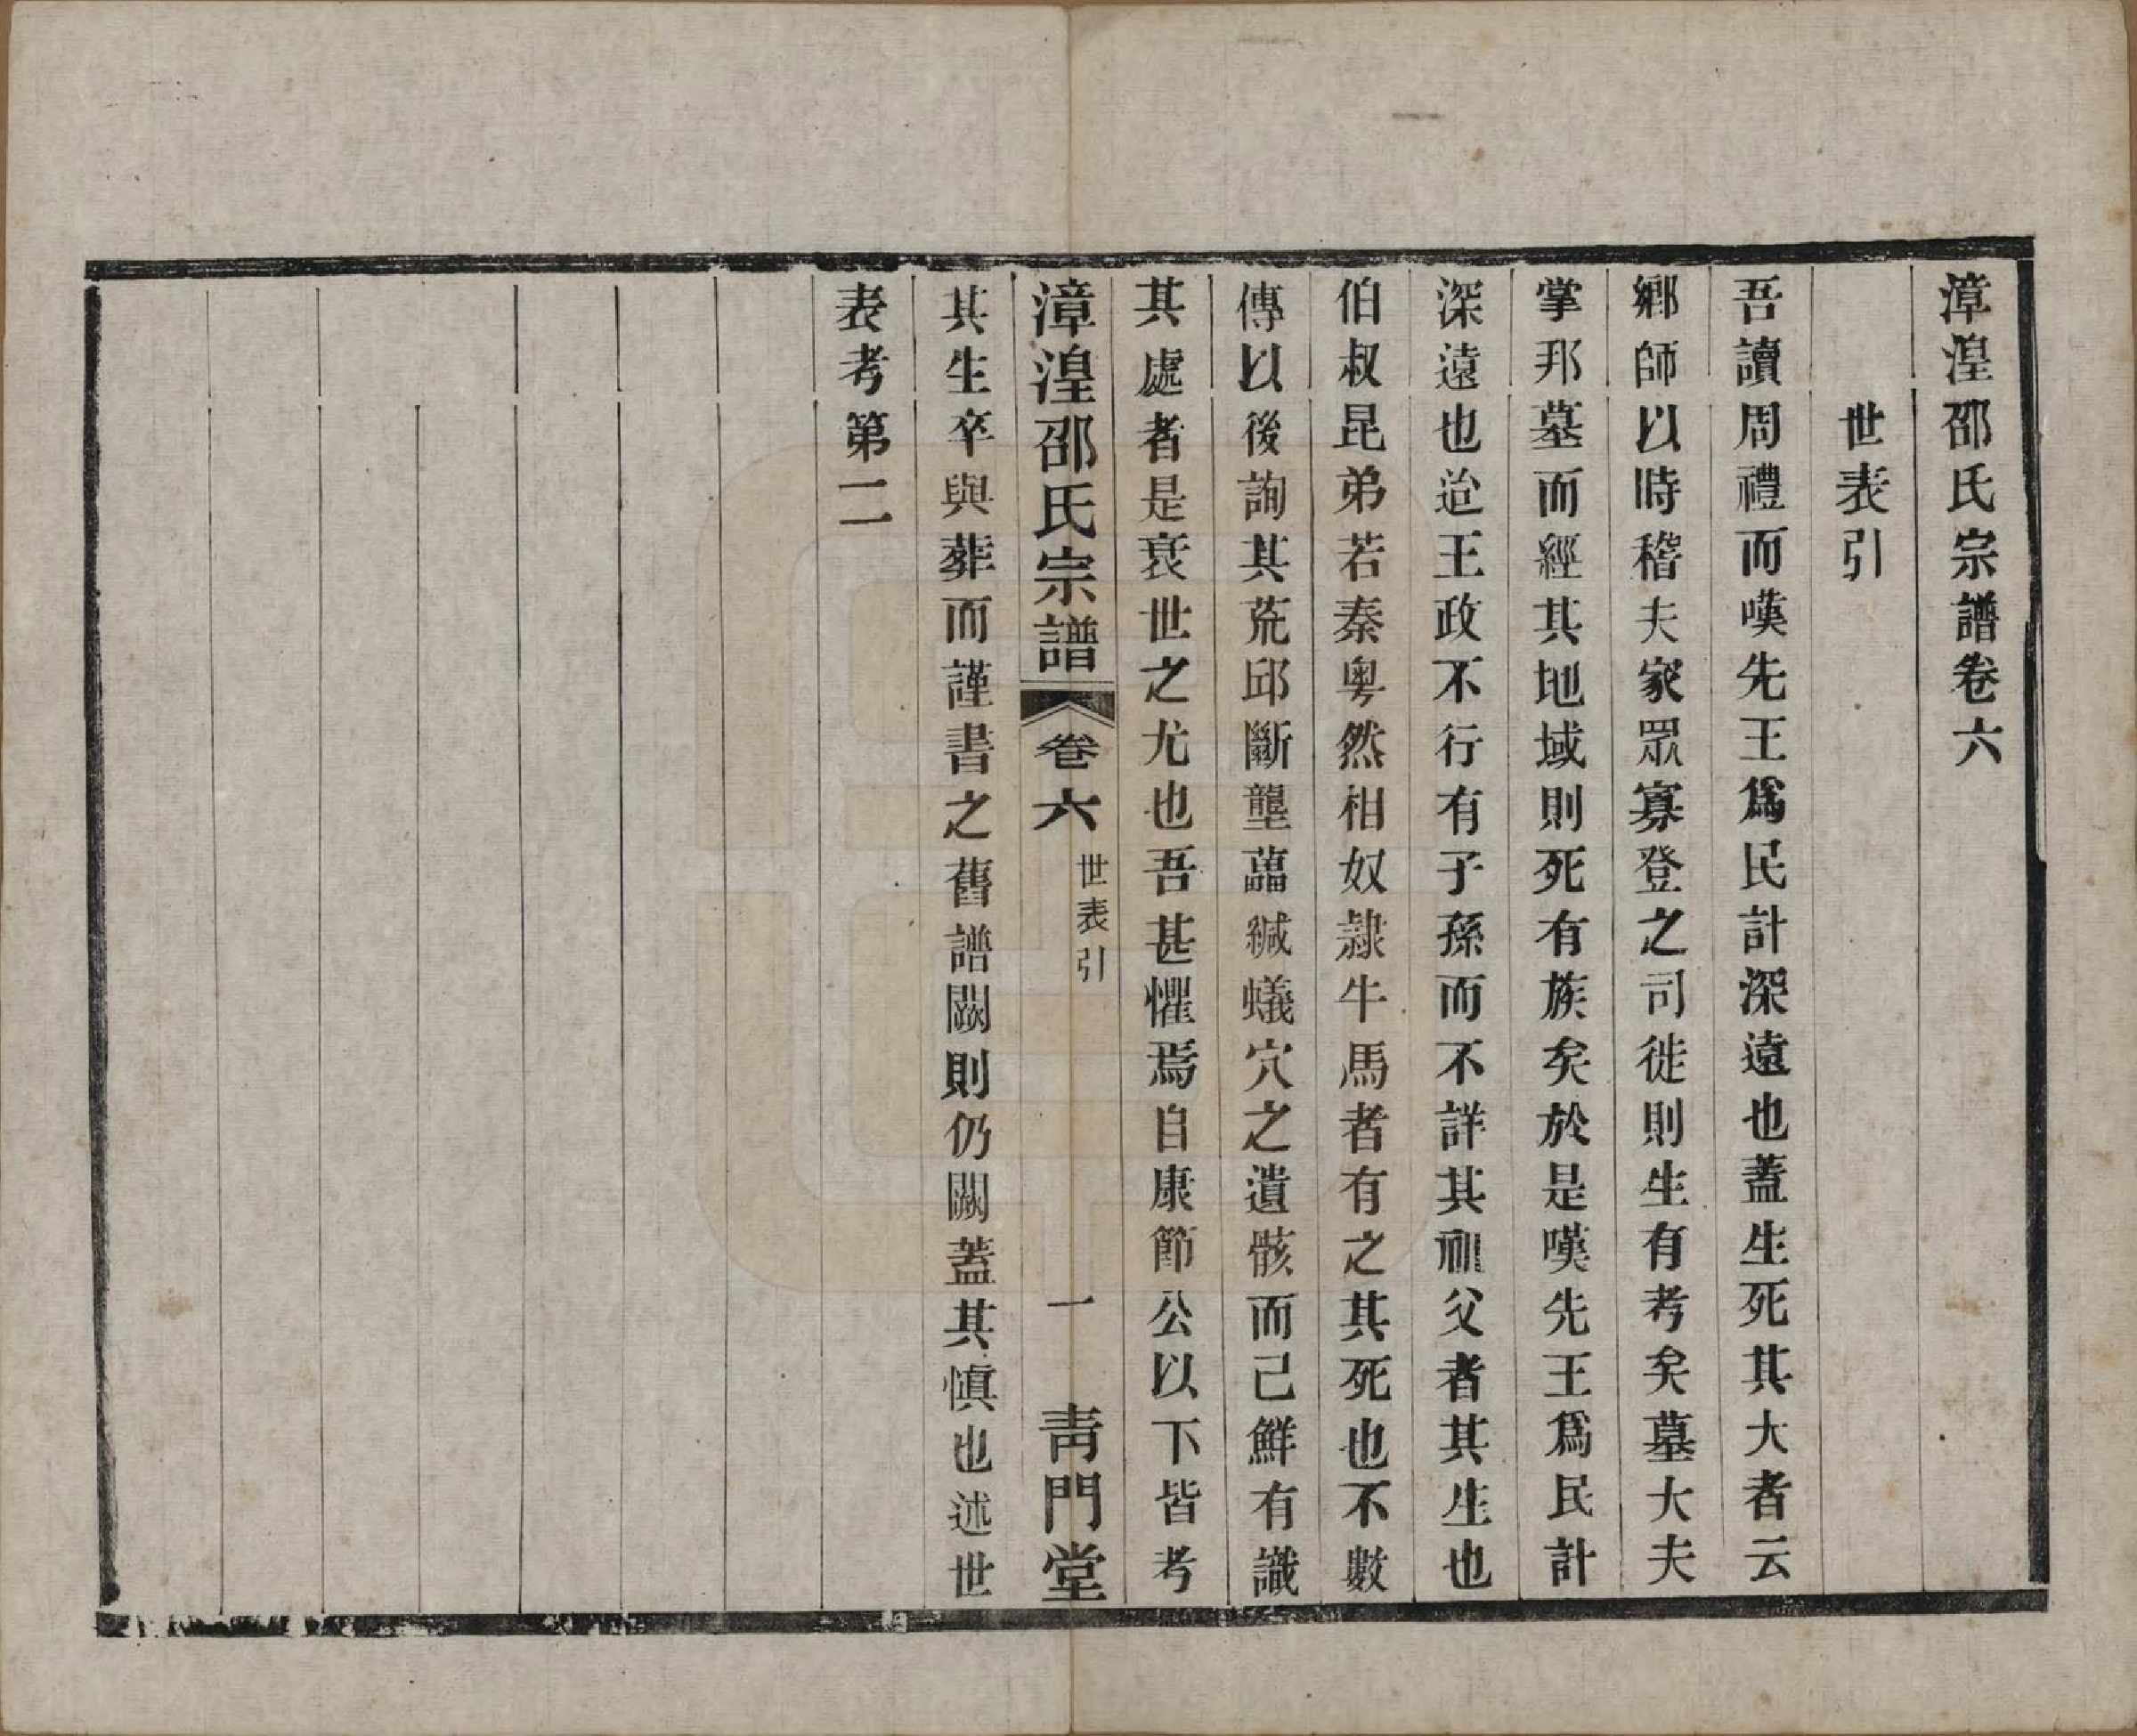 漳湟邵氏宗譜卷六
世表引
吾讀周禮而嘆先王爲民計深遠也蓋生死其大者云
鄉師以時稽夫家眾寡登之司徙則生有考矣墓大夫
掌邦墓而經其地域則死有族矣於是嘆先王爲民計
深遠也迨王政不行有子孫而不詳其祖父者其生也
伯叔昆弟若秦粵然相奴隷牛馬者有之其死也不數
傳以後詢其荒邱斷壟虆緘蟻穴之遺骸而己鮮有識
其處者是衰世之尤也吾甚懼焉自康節公以下皆考
漳湟邵氏宗譜 卷六 世表引 一 靑門堂
其生卒與葬而謹書之舊譜闕則仍闕蓋其愼也述世
表考第二